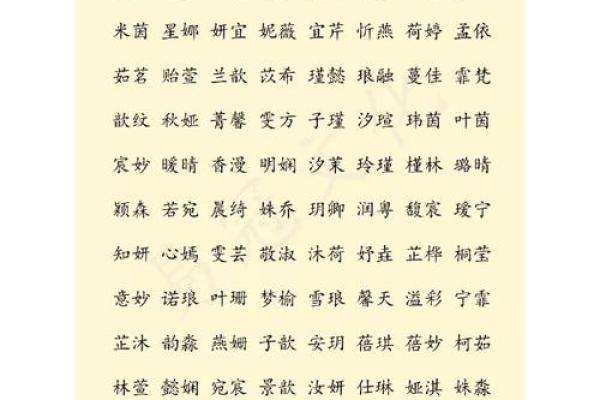 米茵 星娜 妍宜 妮薇 宜芹 忻燕 荷婷 孟依
茹茗 贻萱 兰歆 苡希 瑾懿 琅融 蔓佳 霏梵
歆纹 秋娅 菁馨 雯方 子瑾 汐瑄 玮茵 叶茵
宸妙 暖晴 香漫 明娴 汐茉 玲瑾 槿林 璐晴
颖森 若宛 晨绮 姝乔 玥卿 润粤 馥宸 瑷宁
知妍 心嫣 雯芸 敬淑 沐荷 妤垚 芷桦 桐莹
意妙 诺琅 叶珊 梦榆 雪琅 馨天 溢彩 宁霏
芷沐 韵淼 燕姗 子歆 安玥 蓓琪 蓓妙 柯茹
林萱 懿娴 宛宸 景歆 汝妍 仕琳 娅淇 姝淼
易冠文化